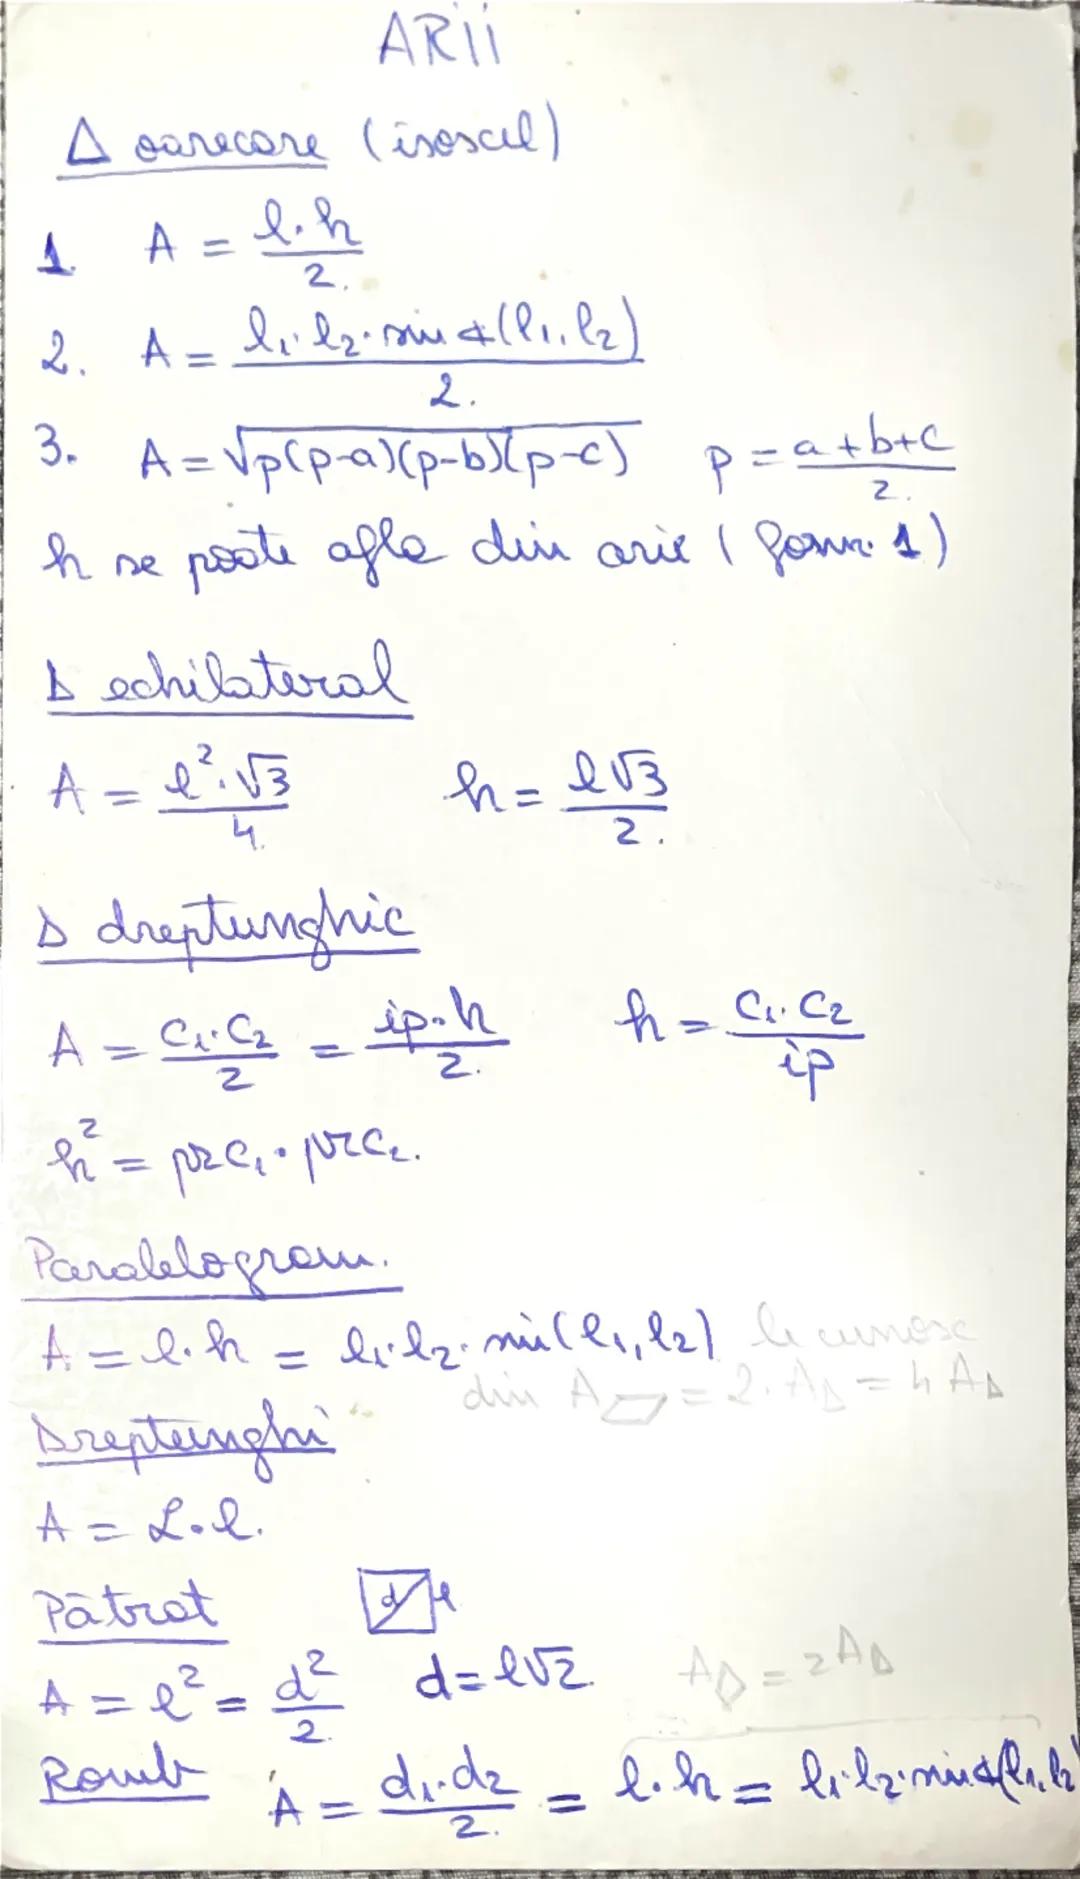 ARII
Δ oarecare (isoscel)
1. A = l·h/2.
2. A = l₁·l₂·sin∢(l₁,l₂)/2.
3. A = √p(p-a)(p-b)(p-c) p = a+b+c/2.
h se poate afla din arie (form. 1)
Δ echilateral
A = l²·√3/4. h = l√3/2.
Δ dreptunghic
A = C₁·C₂/2 = ip·h/2. h = C₁·C₂/ip
h² = prC₁·prC₂.
Paralelogram.
A = l·h = l₁·l₂·sin(l₁,l₂) le cunosc
din A▱ = 2·AΔ = 4AΔ
Dreptunghi
A = L·l.
Pătrat d l
A = l² = d²/2. d = l√2. = 2AΔ
Romb A = d₁·d₂/2. = l·h = l₁·l₂·sin∢(l₁,l₂)